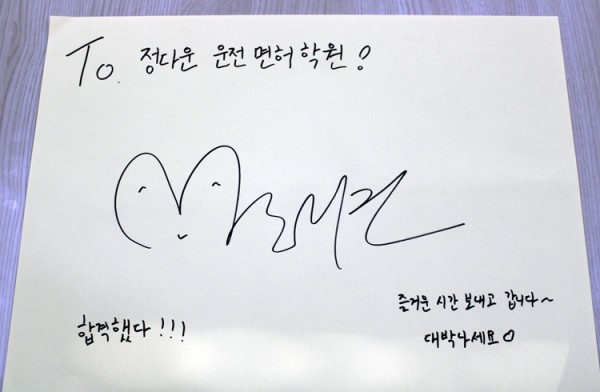 To. 정다운 운전면허학원!
합격했다!!!
즐거운 시간 보내고 갑니다~
대박나세요♡